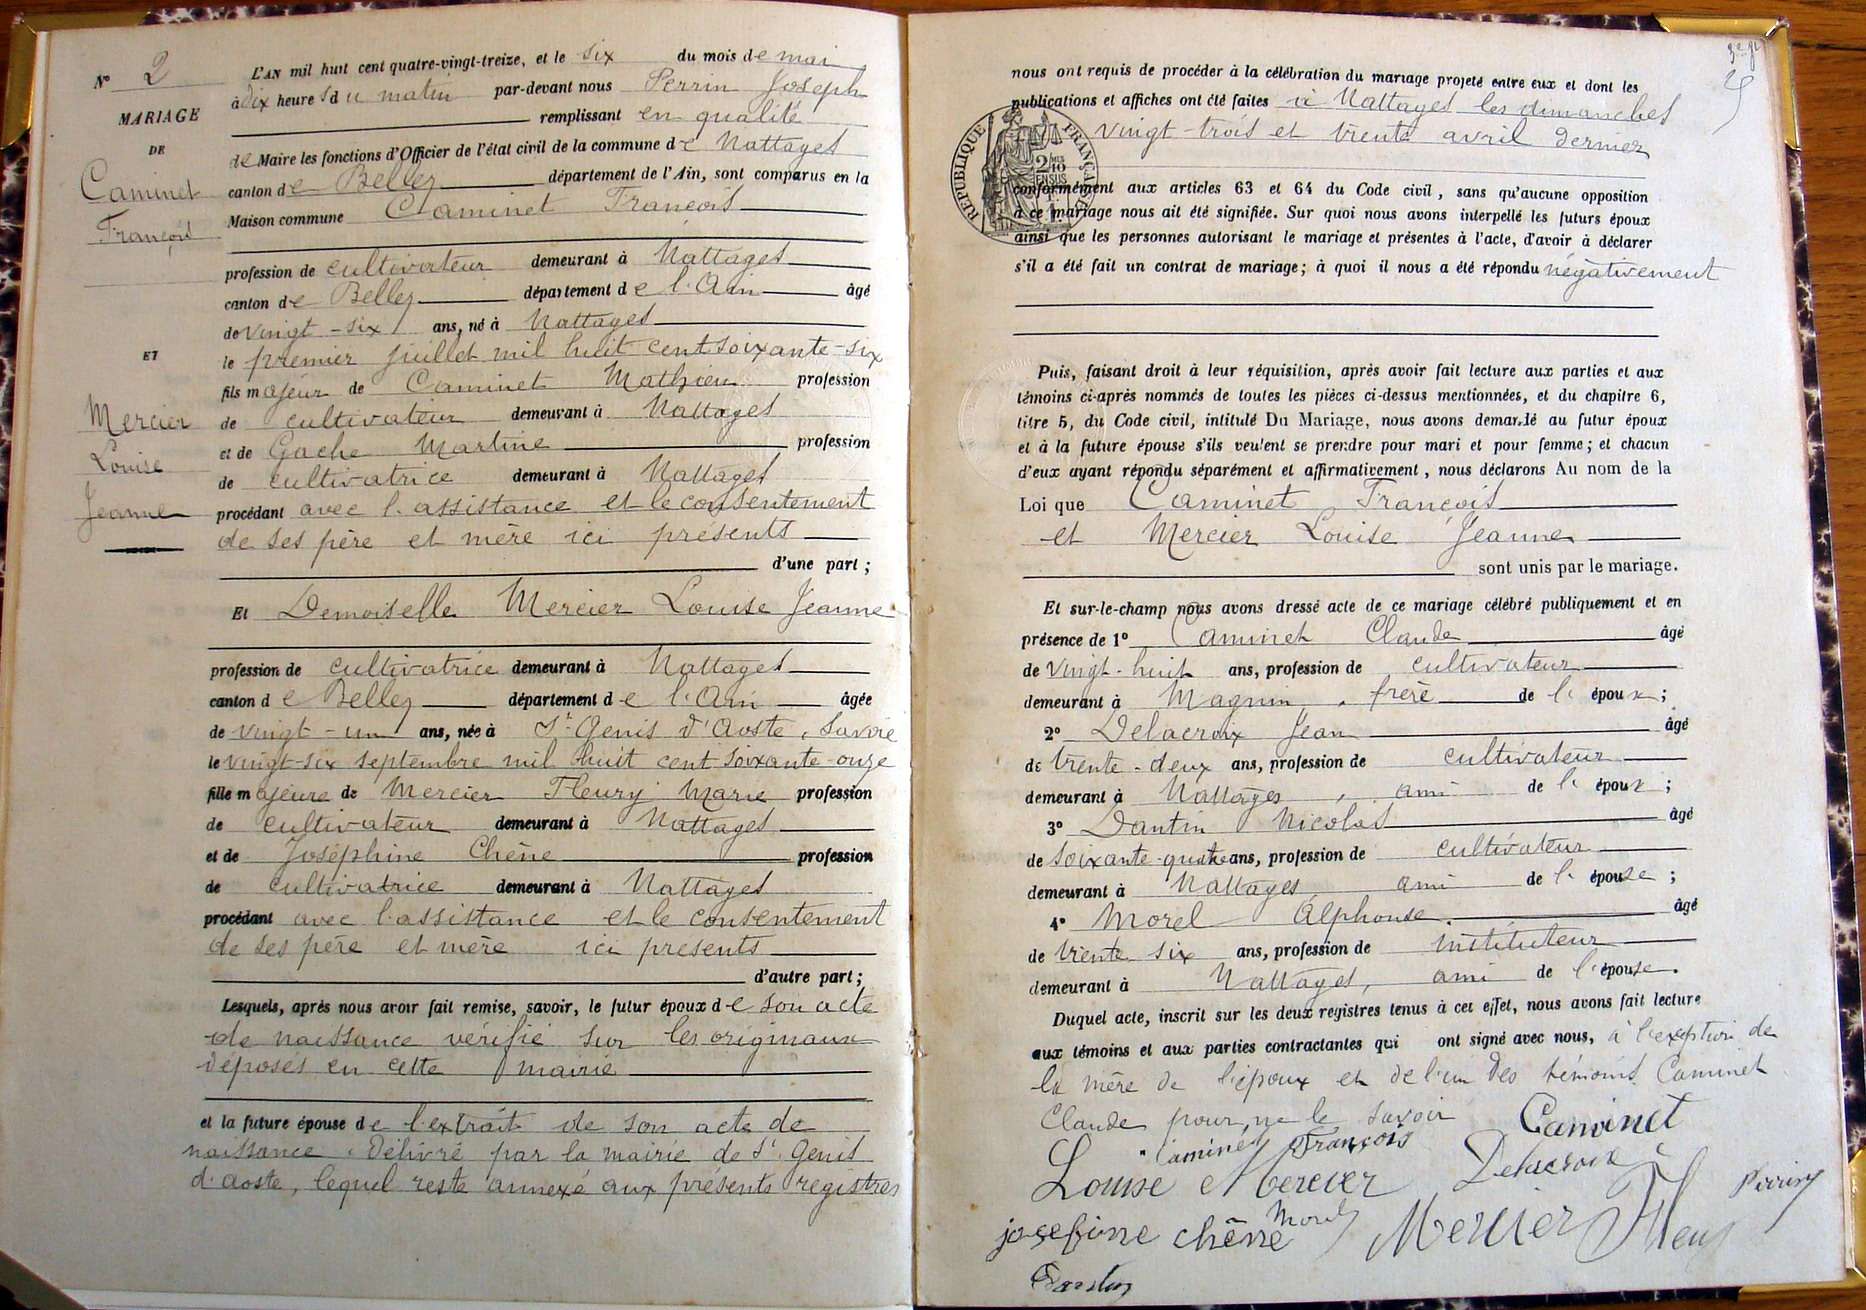 N° 2
MARIAGE
DE
Caminet
François
ET
Mercier
Louise
Jeanne
L'AN mil huit cent quatre-vingt-treize, et le six du mois de mai
à dix heures du matin par-devant nous Perrin Joseph
remplissant en qualité
de Maire les fonctions d'Officier de l'état civil de la commune de Nattages
canton de Belley département de l'Ain, sont comparus en la
Maison commune Caminet François
profession de cultivateur demeurant à Nattages
canton de Belley département de l'Ain âgé
de vingt-six ans, né à Nattages
le premier juillet mil huit cent soixante-six
fils majeur de Caminet Mathieu profession
de cultivateur demeurant à Nattages
et de Gache Martine profession
de cultivatrice demeurant à Nattages
procédant avec l'assistance et le consentement
de ses père et mère ici présents
d'une part ;
Et Demoiselle Mercier Louise Jeanne
profession de cultivatrice demeurant à Nattages
canton de Belley département de l'Ain âgée
de vingt-un ans, née à St Genis d'Aoste, Savoie
le vingt-six septembre mil huit cent soixante-onze
fille majeure de Mercier Fleury Marie profession
de cultivateur demeurant à Nattages
et de Joséphine Chêne profession
de cultivatrice demeurant à Nattages
procédant avec l'assistance et le consentement
de ses père et mère ici présents
d'autre part ;
Lesquels, après nous avoir fait remise, savoir, le futur époux de son acte
de naissance vérifié sur les originaux
déposés en cette mairie
et la future épouse de l'extrait de son acte de
naissance délivré par la mairie de St Genis
d'aoste, lequel reste annexé aux présents registres
nous ont requis de procéder à la célébration du mariage projeté entre eux et dont les
publications et affiches ont été faites à Nattages les dimanches
vingt-trois et trente avril dernier
RÉPUBLIQUE FRANÇAISE
conformément aux articles 63 et 64 du Code civil, sans qu'aucune opposition
à ce mariage nous ait été signifiée. Sur quoi nous avons interpellé les futurs époux
ainsi que les personnes autorisant le mariage et présentes à l'acte, d'avoir à déclarer
s'il a été fait un contrat de mariage ; à quoi il nous a été répondu négativement
Puis, faisant droit à leur réquisition, après avoir fait lecture aux parties et aux
témoins ci-après nommés de toutes les pièces ci-dessus mentionnées, et du chapitre 6,
titre 5, du Code civil, intitulé Du Mariage, nous avons demandé au futur époux
et à la future épouse s'ils veulent se prendre pour mari et pour femme ; et chacun
d'eux ayant répondu séparément et affirmativement, nous déclarons Au nom de la
Loi que Caminet François
et Mercier Louise Jeanne
sont unis par le mariage.
Et sur-le-champ nous avons dressé acte de ce mariage célébré publiquement et en
présence de 1° Caminet Claude âgé
de vingt-huit ans, profession de cultivateur
demeurant à Magnin, frère de l'époux ;
2° Delacroix Jean âgé
de trente-deux ans, profession de cultivateur
demeurant à Nattages, ami de l'époux ;
3° Dantin Nicolas âgé
de soixante-quatre ans, profession de cultivateur
demeurant à Nattages, ami de l'épouse ;
4° Morel Alphonse âgé
de trente six ans, profession de instituteur
demeurant à Nattages, ami de l'épouse.
Duquel acte, inscrit sur les deux registres tenus à cet effet, nous avons fait lecture
aux témoins et aux parties contractantes qui ont signé avec nous, à l'exception de
la mère de l'époux et de l'un des témoins Caminet
Claude pour ne le savoir Caminet
Caminet François
Louise Mercier Delacroix Perrin
josefine chêne Morel Mercier Fleury
Dantin